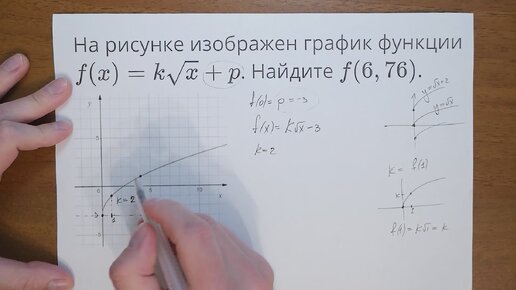 На рисунке изображен график функции
f(x) = k√x + p. Найдите f(6,76).
f(0) = p = -3
f(x) = k√x - 3
k = 2
y
5
0
5
10
x
-3
1
k = 2
-5
y=√x+2
y=√x
k = f(1)
k
1
f(1) = k√1 = k